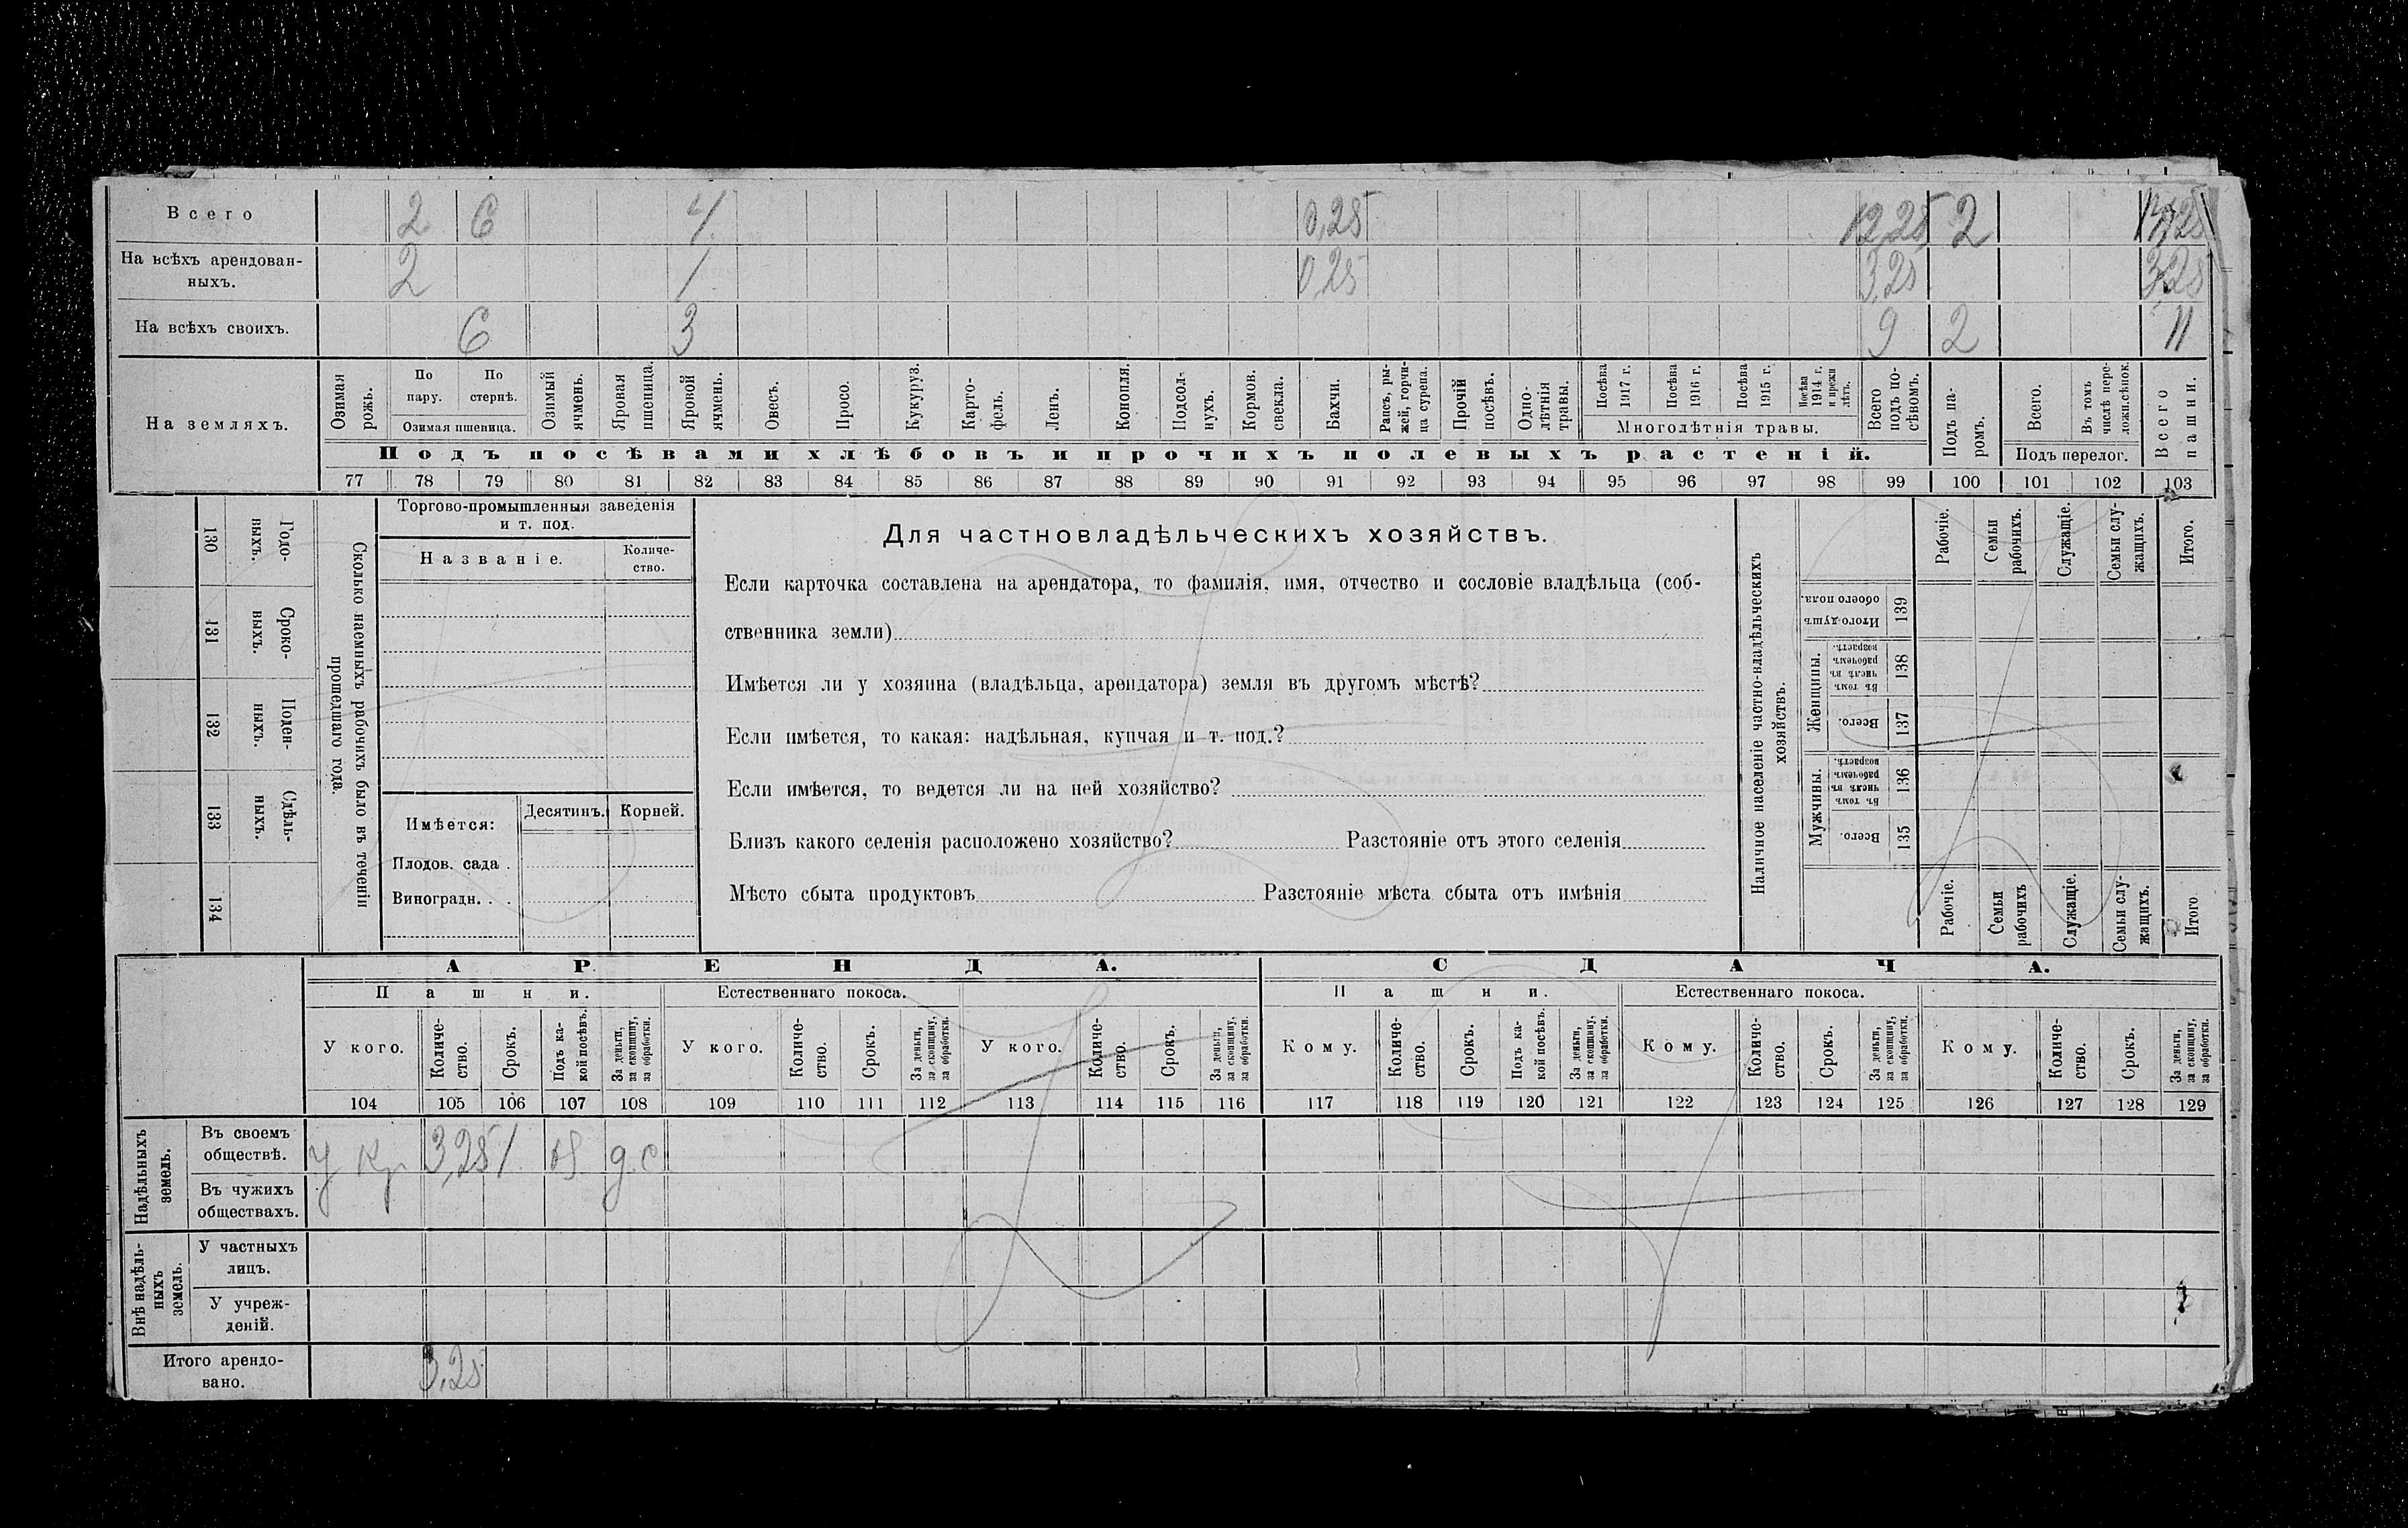 Всего 2 6 4 0,25 12,25 2 14,25
На всѣхъ арендован-
ныхъ. 2 1 0,25 3,25 3,25
На всѣхъ своихъ. 6 3 9 2 11
На земляхъ.
Озимая рожь.
По пару.
По стернѣ.
Озимая пшеница.
Озимый ячмень.
Яровая пшеница.
Яровой ячмень.
Овесъ.
Просо.
Кукуруз.
Карто-
фель.
Ленъ.
Конопля.
Подсол-
нухъ.
Кормов.
свекла.
Бахчи.
Рапсъ, ры-
жей, горчи-
ца сурепа.
Прочій
посѣвъ.
Одно-
лѣтнія
травы.
Посѣва
1917 г.
Посѣва
1916 г.
Посѣва
1915 г.
Посѣва
1914 г.
и прежн
лѣтъ.
Многолѣтнія травы.
Всего
подъ по-
сѣвомъ.
Подъ па-
ромъ.
Всего.
Въ томъ
числѣ пере-
ложн.сѣнок.
Подъ перелог.
Всего
пашни.
Подъ посѣвами хлѣбовъ и прочихъ полевыхъ растеній.
77 78 79 80 81 82 83 84 85 86 87 88 89 90 91 92 93 94 95 96 97 98 99 100 101 102 103
Сколько наемныхъ рабочихъ было въ теченіи
прошедшаго года.
Годо-
выхъ.
130
Сроко-
выхъ.
131
Поден-
ныхъ.
132
Сдѣль-
ныхъ.
133
134
Торгово-промышленныя заведенія
и т. под.
Названіе.
Количе-
ство.
Имѣется:
Десятинъ.
Корней.
Плодов. сада .
Виноградн. . .
Для частновладѣльческихъ хозяйствъ.
Если карточка составлена на арендатора, то фамилія, имя, отчество и сословіе владѣльца (соб-
ственника земли)
Имѣется ли у хозяина (владѣльца, арендатора) земля въ другомъ мѣстѣ?
Если имѣется, то какая: надѣльная, купчая и т. под.?
Если имѣется, то ведется ли на ней хозяйство?
Близъ какого селенія расположено хозяйство? Разстояніе отъ этого селенія
Мѣсто сбыта продуктовъ Разстояніе мѣста сбыта отъ имѣнія
Наличное населеніе частно-владѣльческихъ
хозяйствъ.
Рабочіе.
Семьи
рабочихъ.
Служащіе.
Семьи слу-
жащихъ.
Итого.
Итого душъ
обоего пола.
139
Женщины.
Въ томъ
числѣ въ
рабочемъ
возрастѣ.
138
Всего.
137
Мужчины.
Въ томъ
числѣ въ
рабочемъ
возрастѣ.
136
Всего.
135
Рабочіе.
Семьи
рабочихъ
Служащіе.
Семьи слу-
жащихъ.
Итого
АРЕНДА. СДАЧА.
Пашни. Естественнаго покоса. Пашни. Естественнаго покоса.
У кого.
Количе-
ство.
Срокъ.
Подъ ка-
кой посѣвъ.
За деньги,
за скопщину,
за обработки.
У кого.
Количе-
ство.
Срокъ.
За деньги,
за скопщину,
за обработки.
У кого.
Количе-
ство.
Срокъ.
За деньги,
за скопщину,
за обработки.
Кому.
Количе-
ство.
Срокъ.
Подъ ка-
кой посѣвъ.
За деньги,
за скопщину,
за обработки.
Кому.
Количе-
ство.
Срокъ.
За деньги,
за скопщину,
за обработки.
Кому.
Количе-
ство.
Срокъ.
За деньги,
за скопщину,
за обработки.
104 105 106 107 108 109 110 111 112 113 114 115 116 117 118 119 120 121 122 123 124 125 126 127 128 129
Надѣльныхъ
земель.
Въ своемъ
обществѣ. У кр 3,25 1
Въ чужихъ
обществахъ.
Внѣ надѣль-
ныхъ
земель.
У частныхъ
лицъ.
У учреж-
деній.
Итого арендо-
вано. 3,25